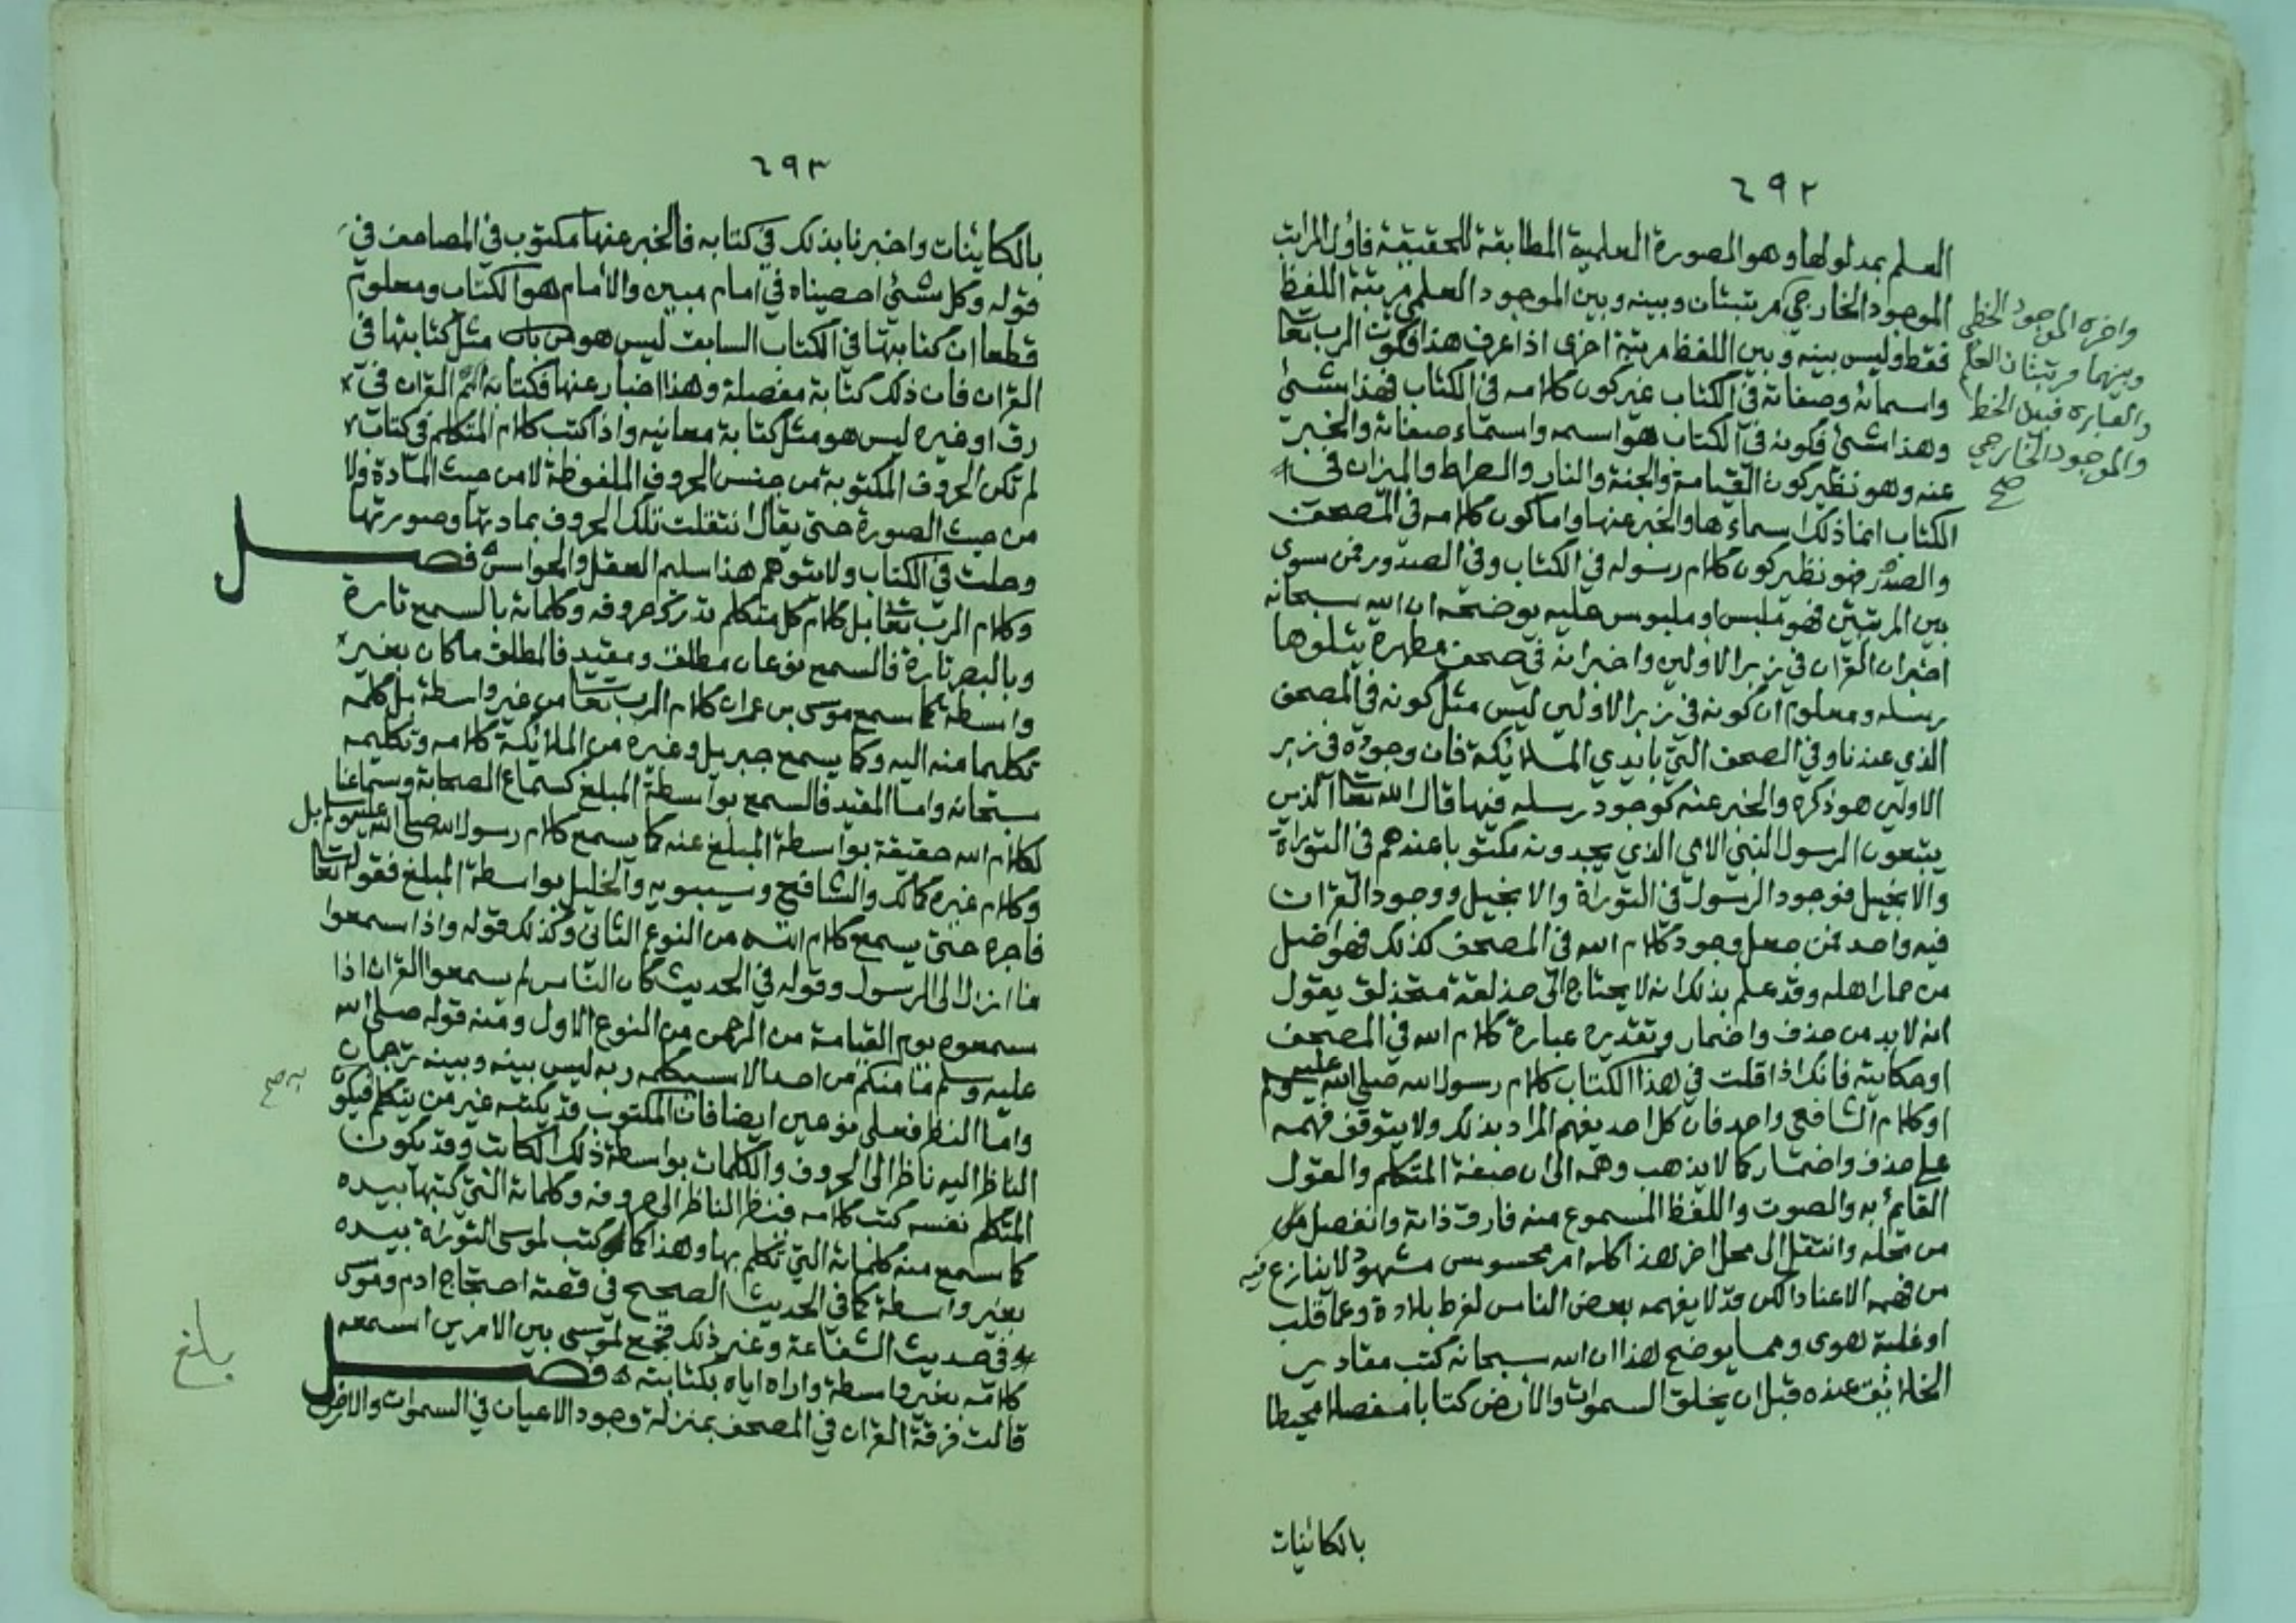 ٦٩٢
العلم بمدلولها وهو الصورة العلمية المطابقة للحقيقة فاول المراتب
الموجود الخارجي مرتبتان وبينه وبين الموجود العلمي مرتبة اللفظ
فقط وليس بينه وبين اللفظ مرتبة اخرى اذا عرف هذا فكون الرب تعا
واسمائه وصفاته في الكتاب غير كون كلامه في الكتاب فهذا شئ
وهذا شئ فكونه في الكتاب هو اسمه واسماء صفاته والخبر
عنه وهو نظير كون القيامة والجنة والنار والصراط والميزان في
الكتاب انما ذلك اسماءها والخبر عنها واما كون كلامه في المصحف
والصدر فهو نظير كون كلام رسوله في الكتاب وفي الصدور فمن سوى
بين المرتبتين فهو ملبس او ملبوس عليه يوضحه ان الله سبحانه
اخبر ان القران في زبر الاولين واخبر انه في صحف مطهرة يتلوها
رسله ومعلوم ان كونه في زبر الاولين ليس مثل كونه في المصحف
الذي عندنا وفي الصحف التي بايدي الملائكة فان وجوده في زبر
الاولين هو ذكره والخبر عنه كوجود رسله فيها قال الله تعا الذين
يتبعون الرسول النبي الامي الذي يجدونه مكتوبا عندهم في التوراة
والانجيل فوجود الرسول في التوراة والانجيل ووجود القران
فيه واحد فمن جعل وجود كلام الله في المصحف كذلك فهو اضل
من حمار اهله وقد علم بذلك انه لا يحتاج الى حذلقة متحذلق يقول
انه لا بد من حذف واضمار وتقديره عبارة كلام الله في المصحف
او حكايته فانك اذا قلت في هذا الكتاب كلام رسول الله صلى الله عليه وسلم
او كلام الشافعي واحد فان كل احد يفهم المراد بذلك ولا يتوقف فهمه
على حذف واضمار كما لا يذهب وهمه الى ان صفة المتكلم والقول
القايم به والصوت واللفظ المسموع منه فارق ذاته وانفصل
من محله وانتقل الى محل اخر هذا كله امر محسوس مشهود لا ينازع فيه
من فهمه الا عنادا لكن قد لا يفهمه بعض الناس لفرط بلادة وعما قلب
او غلبة هوى ومما يوضح هذا ان الله سبحانه كتب مقادير
الخلائق عنده قبل ان يخلق السموات والارض كتابا مفصلا محيطا
بالكائنات
واخره الموجود الخطي
وبينهما مرتبتان العلم
والعبارة قبل الخط
والموجود الخارجي
صح
٦٩٣
بالكائنات واخبرنا بذلك في كتابه فالخبر عنها مكتوب في المصاحف في
قوله وكل شئ احصيناه في امام مبين والامام هو الكتاب ومعلوم
قطعا ان كتابتها في الكتاب السابق ليس هو من باب مثل كتابتها في
القران فان ذلك كتابة مفصلة وهذا اخبار عنها فكتابة القران في
رق او غيره ليس هو مثل كتابة معانيه واذا كتب كلام المتكلم في كتاب
لم تكن الحروف المكتوبة من جنس الحروف الملفوظة لا من حيث المادة ولا
من حيث الصورة حتى يقال انتقلت تلك الحروف بمادتها وصورتها
وحلت في الكتاب ولا يتوهم هذا سليم العقل والحواس فصل
وكلام الرب تعا بل كلام كل متكلم تدرك حروفه وكلماته بالسمع تارة
وبالبصر تارة فالسمع نوعان مطلق ومقيد فالمطلق ما كان بغير
واسطة كما سمع موسى بن عمران كلام الرب تعا من غير واسطة بل كلمه
تكليما منه اليه وكما يسمع جبريل وغيره من الملائكة كلامه وتكليمه
سبحانه واما المقيد فالسمع بواسطة المبلغ كسماع الصحابة وسماعنا
لكلام الله حقيقة بواسطة المبلغ عنه كما يسمع كلام رسول الله صلى الله عليه وسلم بل
وكلام غيره كمالك والشافعي وسيبويه والخليل بواسطة المبلغ فقوله تعا
فاجره حتى يسمع كلام الله من النوع الثاني وكذلك قوله واذا سمعوا
ما انزل الى الرسول وقوله في الحديث كان الناس لم يسمعوا القران اذا
سمعوه يوم القيامة من الرحمن من النوع الاول ومنه قوله صلى الله
عليه وسلم ما منكم من احد الا سيكلمه ربه ليس بينه وبينه ترجمان
واما النظر فعلى نوعين ايضا فان المكتوب قد يكتبه غير من يتكلم فيكون
الناظر اليه ناظرا الى الحروف والكلمات بواسطة ذلك الكاتب وقد يكون
المتكلم نفسه كتب كلامه فينظر الناظر الى حروفه وكلماته التي كتبها بيده
كما سمع منه كلماته التي تكلم بها وهذا كما كتب لموسى التوراة بيده
بغير واسطة كما في الحديث الصحيح في قصة احتجاج ادم وموسى
وفي حديث الشفاعة وغير ذلك فجمع لموسى بين الامرين اسمعه
كلامه بغير واسطة واراه اياه بكتابته فصل
قالت فرقة القران في المصحف بمنزلة وجود الاعيان في السموات والارض
به صح
بلغ